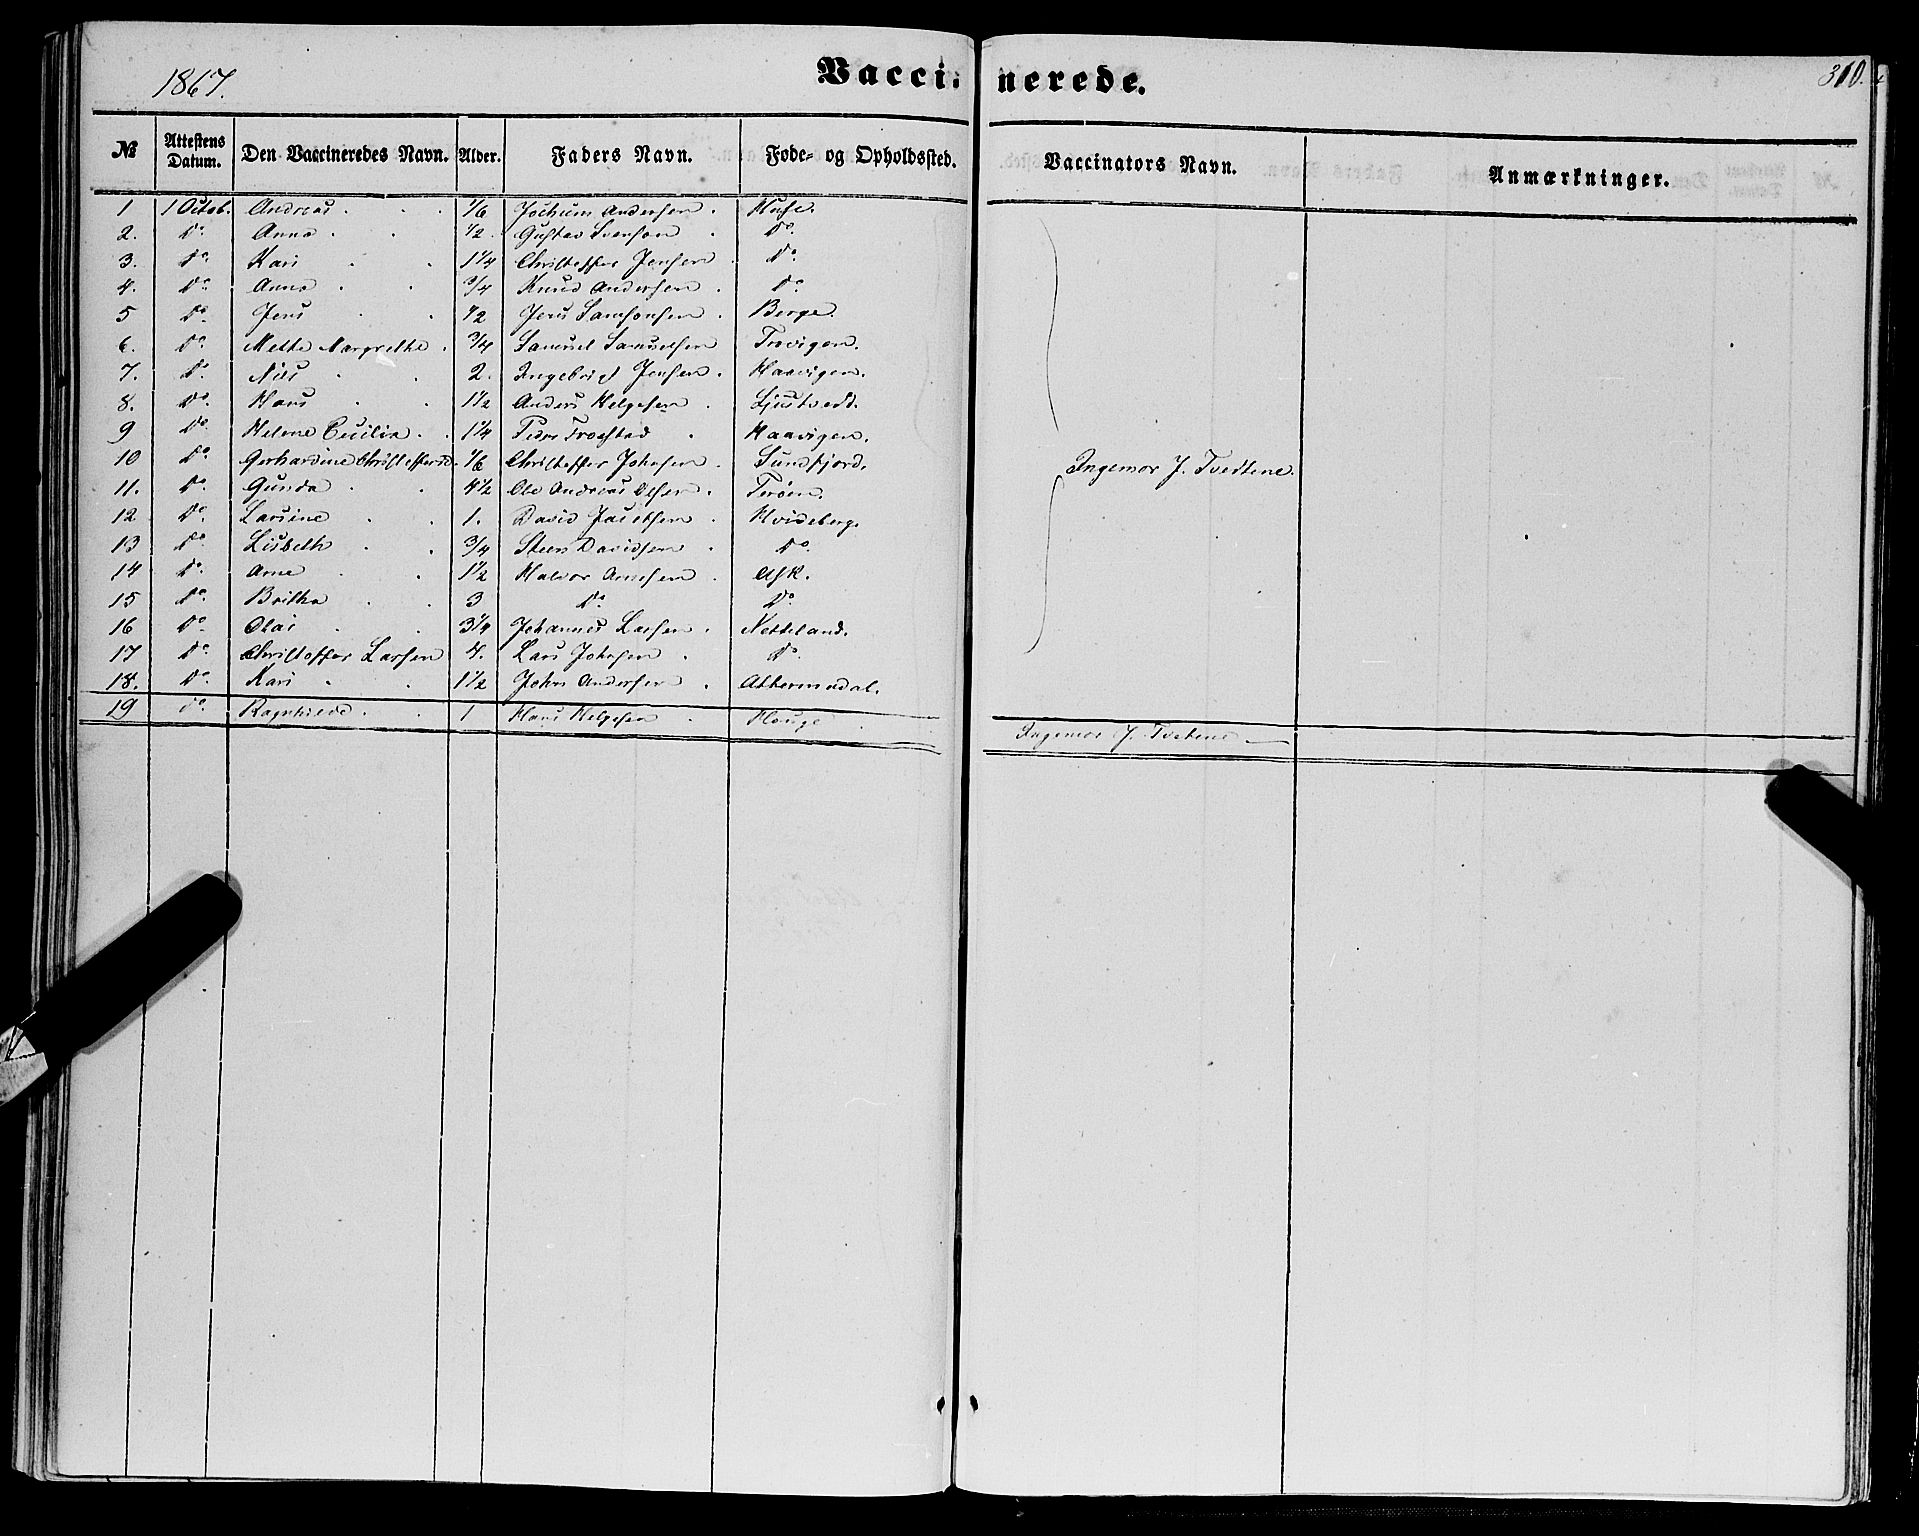 1867.
Vaccinerede.
310.
№ Attestens Datum. Den Vaccineredes Navn. Alder. Faders Navn. Føde- og Opholdssted. Vaccinators Navn. Anmærkninger.
1 1 Octob. Andreas 1/6 Jochum Andersen Huse.
2. Do Anna 1/2 Gustav Svenson Do
3. Do Kari 1 1/4 Christoffer Jensen Do
4. Do Anna 3/4 Knud Andersen Do
5 Do Jens 1/2 Jens Samsonsen Berge.
6. Do Mette Margrethe 3/4 Samuel Samuelsen
7. Do Nils 2. Ingebrigt Jensen Haavigen.
8. Do Hans 1 1/2 Anders Helgesen
9 Do Helene Cecilia 1 1/4 Peder Haavigen.
10 Do Gerhardine Christoffersd. 1/6 Christoffer Johnsen Sundfjord.
11. Do Gunda 4 1/2 Ole Andreas Olsen Terøen.
12 Do Larsine 1. David Hvideberg
13 Do Lisbeth 3/4 Steen Davidsen Do
14 Do Arne 1 1/2 Halvor Arnesen Ask.
15 Do Britha 3 Do Do
16 Do Olai 3 1/4 Johannes Larsen Netteland.
17 Do Christoffer Larsen 4. Lars Johnsen Do
18. Do Kari 1 1/2 John Andersen
Ingemor J. Tvedtene.
19 do Ragnhilde 1 Hans Helgesen Hauge Ingemor J. Tvetene